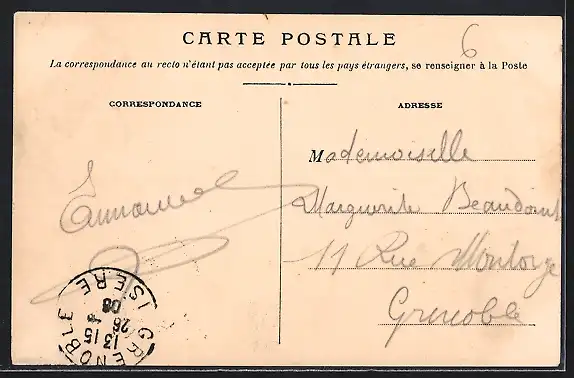 CARTE POSTALE
6
La correspondance au recto n'étant pas acceptée par tous les pays étrangers, se renseigner à la Poste
CORRESPONDANCE
ADRESSE
Emmanuel
Mademoiselle
Marguerite Beaudoint
11 Rue Montorge
Grenoble
GRENOBLE
13 15
26
08
ISERE